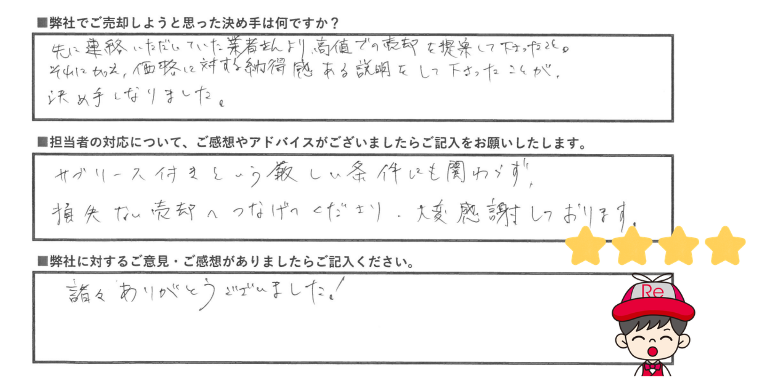 ■弊社でご売却しようと思った決め手は何ですか？
先に連絡いただいていた業者さんより高値での売却を提案して下さったこと。
それに加え、価格に対する納得感ある説明をして下さったことが、
決め手となりました。
■担当者の対応について、ご感想やアドバイスがございましたらご記入をお願いいたします。
サブリース付きという厳しい条件にも関わらず、
損失ない売却へつなげてくださり、大変感謝しております。
■弊社に対するご意見・ご感想がありましたらご記入ください。
諸々ありがとうございました！
Re